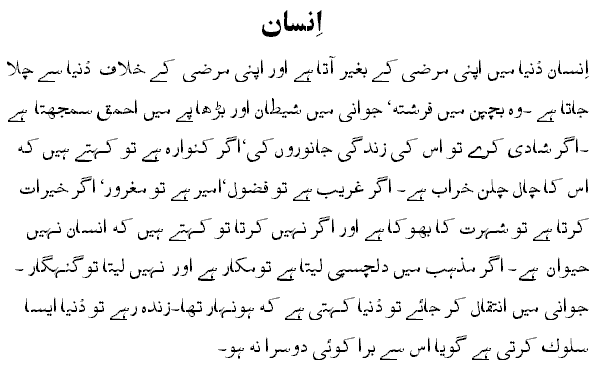 اِنسان
اِنسان دُنیا میں اپنی مرضی کے بغیر آتا ہے اور اپنی مرضی کے خلاف دُنیا سے چلا
جاتا ہے ۔وہ بچپن میں فرشتہ‘ جوانی میں شیطان اور بڑھاپے میں احمق سمجھتا ہے
۔اگر شادی کرے تو اس کی زندگی جانوروں کی‘اگر کنوارہ ہے تو کہتے ہیں کہ
اس کا چال چلن خراب ہے۔ اگر غریب ہے تو فضول‘امیر ہے تو مغرور‘ اگر خیرات
کرتا ہے تو شہرت کا بھوکا ہے اور اگر نہیں کرتا تو کہتے ہیں کہ انسان نہیں
حیوان ہے۔ اگر مذہب میں دلچسپی لیتا ہے تومکار ہے اور نہیں لیتا توگنہگار ۔
جوانی میں انتقال کر جائے تو دُنیا کہتی ہے کہ ہونہار تھا۔زندہ رہے تو دُنیا ایسا
سلوک کرتی ہے گویا اس سے برا کوئی دوسرا نہ ہو۔